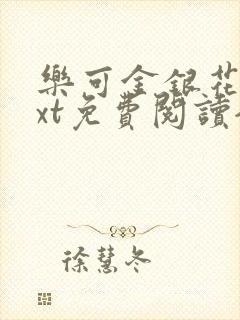 樂可金銀花
xt免費閱讀
徐慧冬